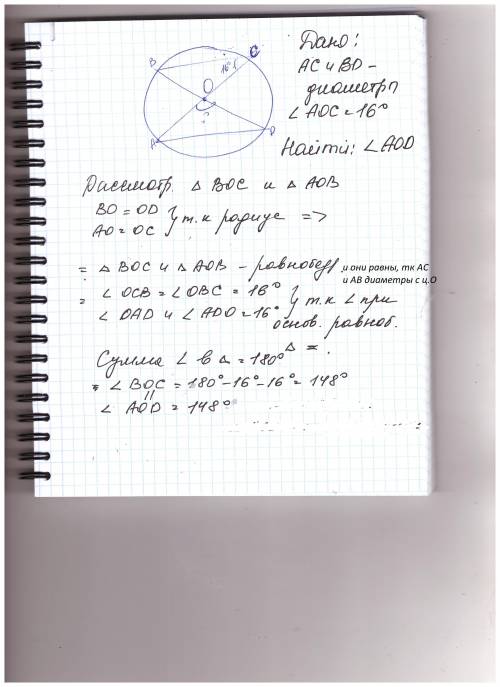 Дано:
B
C
16°
AC и BD -
диаметры
O
∠ AOC = 16°
?
A
D
Найти: ∠AOD
Рассмотр. △ BOC и △ AOB
BO = OD
AO = OC } т.к радиус =>
= △ BOC и △ AOB - равнобед, и они равны, тк AC
и AB диаметры с ц.О
= ∠ OCB = ∠ OBC = 16° } т.к ∠ при
∠ OAD и ∠ ADO = 16° основ. равноб.
△ =.
Сумма ∠ в △ = 180°
∠ BOC = 180° - 16° - 16° = 148°
||
∠ AOD = 148°